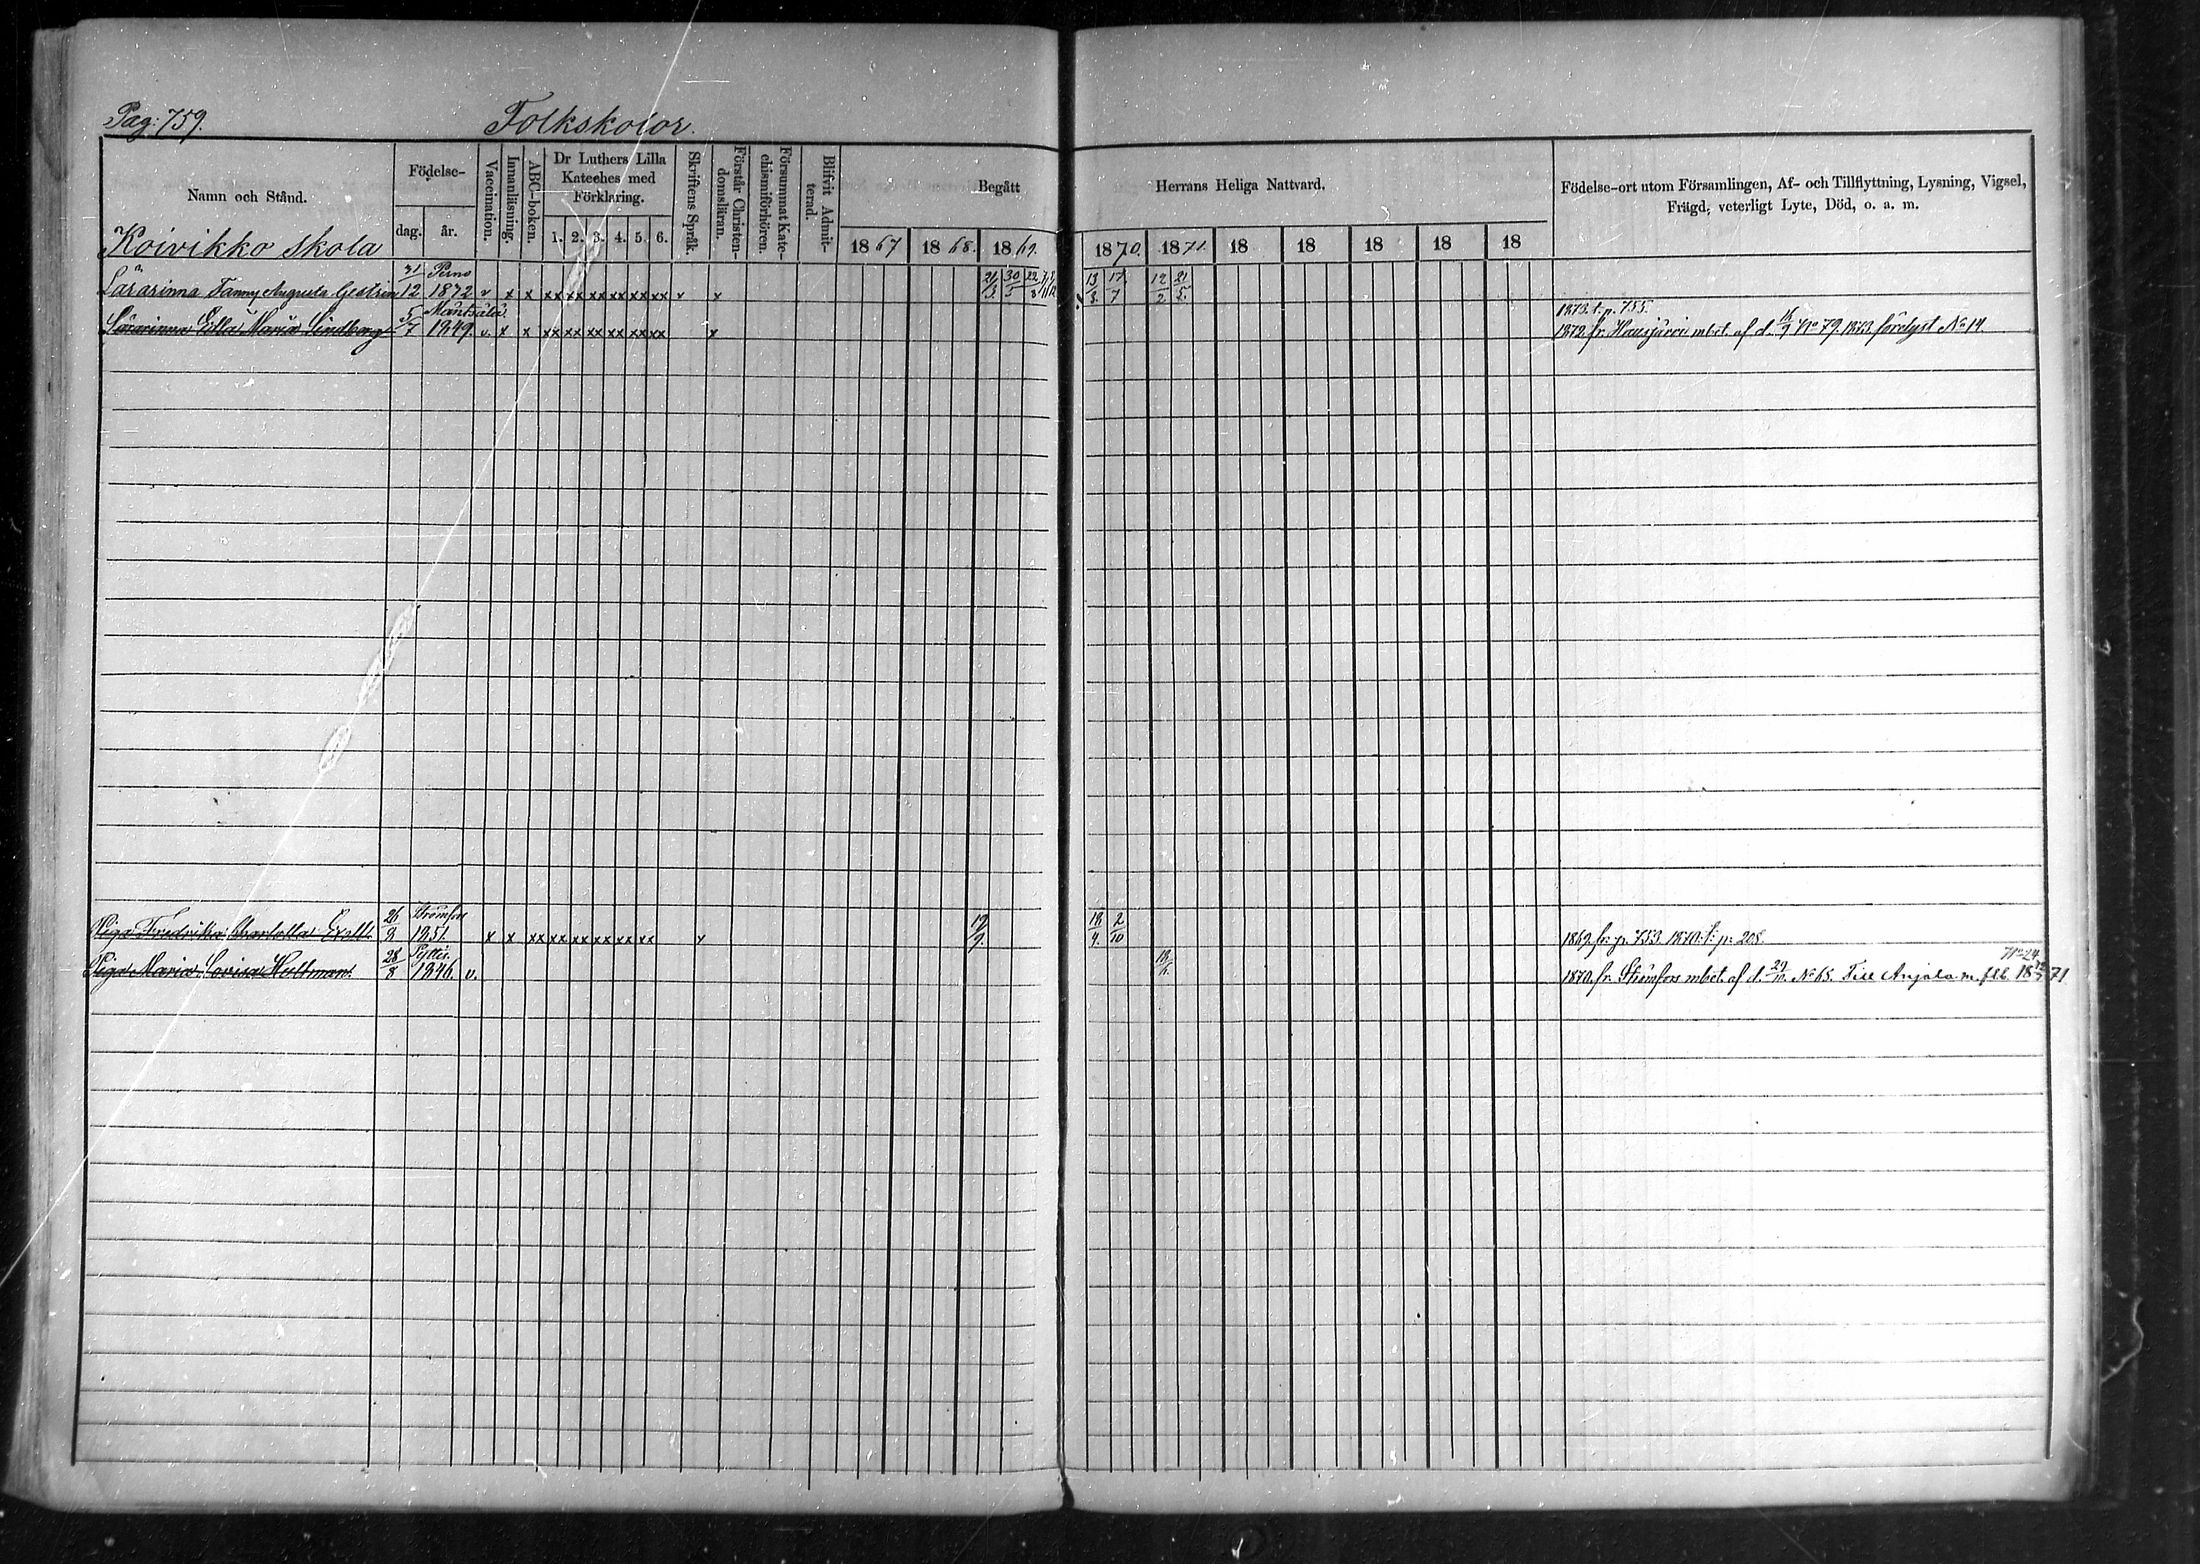 Pag: 759. Folkskolor.
Namn och Stånd. Födelse- dag. år. Vaccination. Innanläsning. ABC-boken. Dr Luthers Lilla Kateches med Förklaring. 1. 2. 3. 4. 5. 6. Skriftens Språk. Förstår Christendomsläran. Försummat Katechismiförhören. Blifvit Admitterad. Begått Herrans Heliga Nattvard. Födelse-ort utom Församlingen, Af- och Tillflyttning, Lysning, Vigsel, Frägd, veterligt Lyte, Död, o. a. m.
Koivikko skola 1867 1868. 1869. 1870. 1871. 18 18 18 18 18
31 Perno 21 30 22 13 17 12 21
Lärarinna Fanny Augusta Gestrin 12 1872 v x x xx xx xx xx xx xx v x 3 5 8 3 7 2 5.
5 Mäntsälä 1873. t. p. 755.
Lärarinna Ella Maria Lindberg 7 1849. v. x x xx xx xx xx xx xx x 1872. fr. Hausjärvi mbet. af d. 18/9 No 79. 1873 förelyst No 14.
26 Strömfors 19 18 2
Piga Fredrika Charlotta Exell. 8 1851. x x xx xx xx xx xx xx v 9. 4. 10 1869. fr. p. 753. 1870. t. p. 208.
28 Pyttis. 18 No 24
Piga Maria Lovisa Hultman. 8 1846. v. 1870. fr. Strömfors mbet. af d. 29/10. No 65. Till Anjala m. flb. 18 71